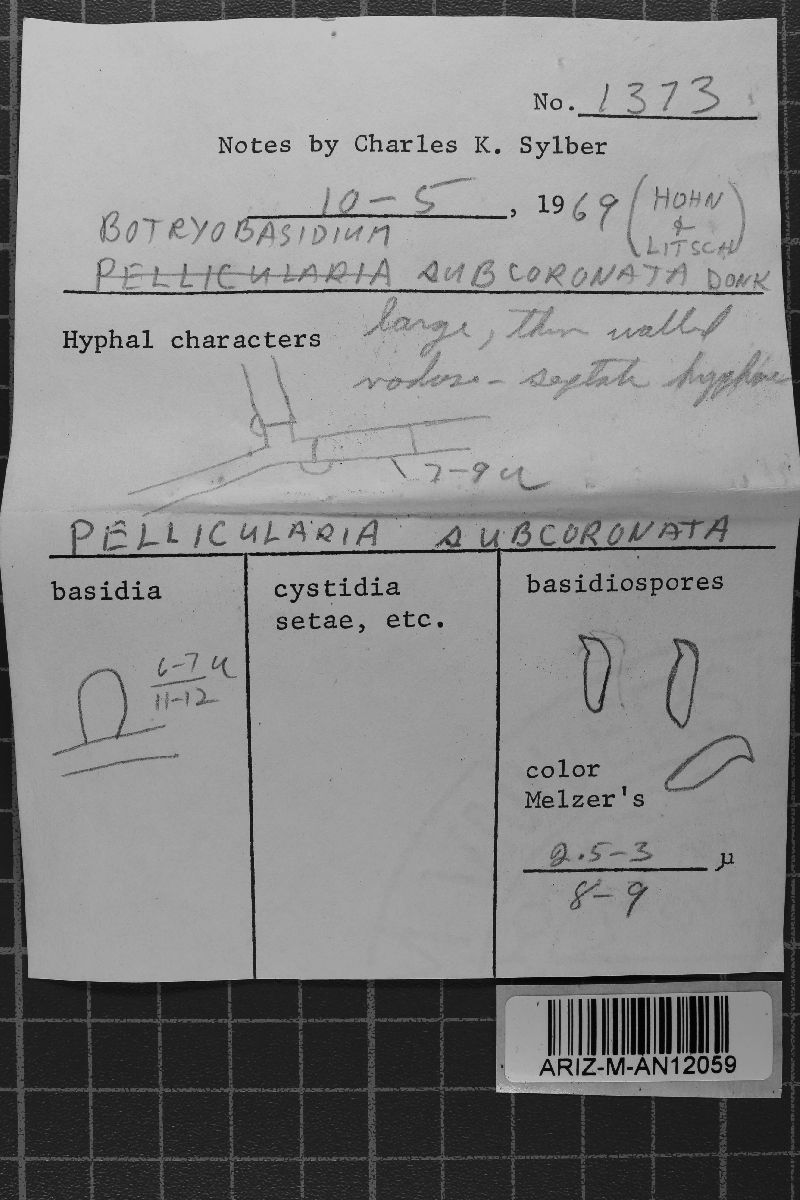 No. 1373
Notes by Charles K. Sylber
10-5, 1969 (HOHN & LITSCH)
BOTRYOBASIDIUM
PELLICULARIA SUBCORONATA DONK
Hyphal characters large, thin walled
nodose-septate hyphae
7-9 u
PELLICULARIA SUBCORONATA
basidia
6-7 u
11-12
cystidia
setae, etc.
basidiospores
color
Melzer's
2.5-3 µ
8-9
ARIZ-M-AN12059